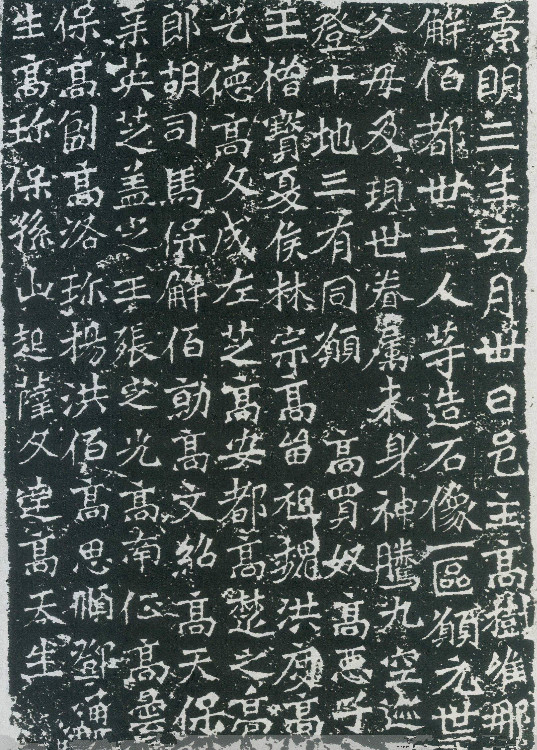 景明三年五月卅日邑主高樹唯那
解佰都卅二人等造石像一區願元世
父母及現世眷屬來身神騰九空迹
登十地三有同願 高買奴高惡子
王僧寶夏侯林宗高留祖魏洪度高
乞德高文成左芝高安都高楚之高
郎胡司馬保解佰勍高文紹高天保
英芝盖王張芝光高南征高曇
保高副高洛珎楊洪佰高思順鄧通
生高珎保孫山起薩文達高天生